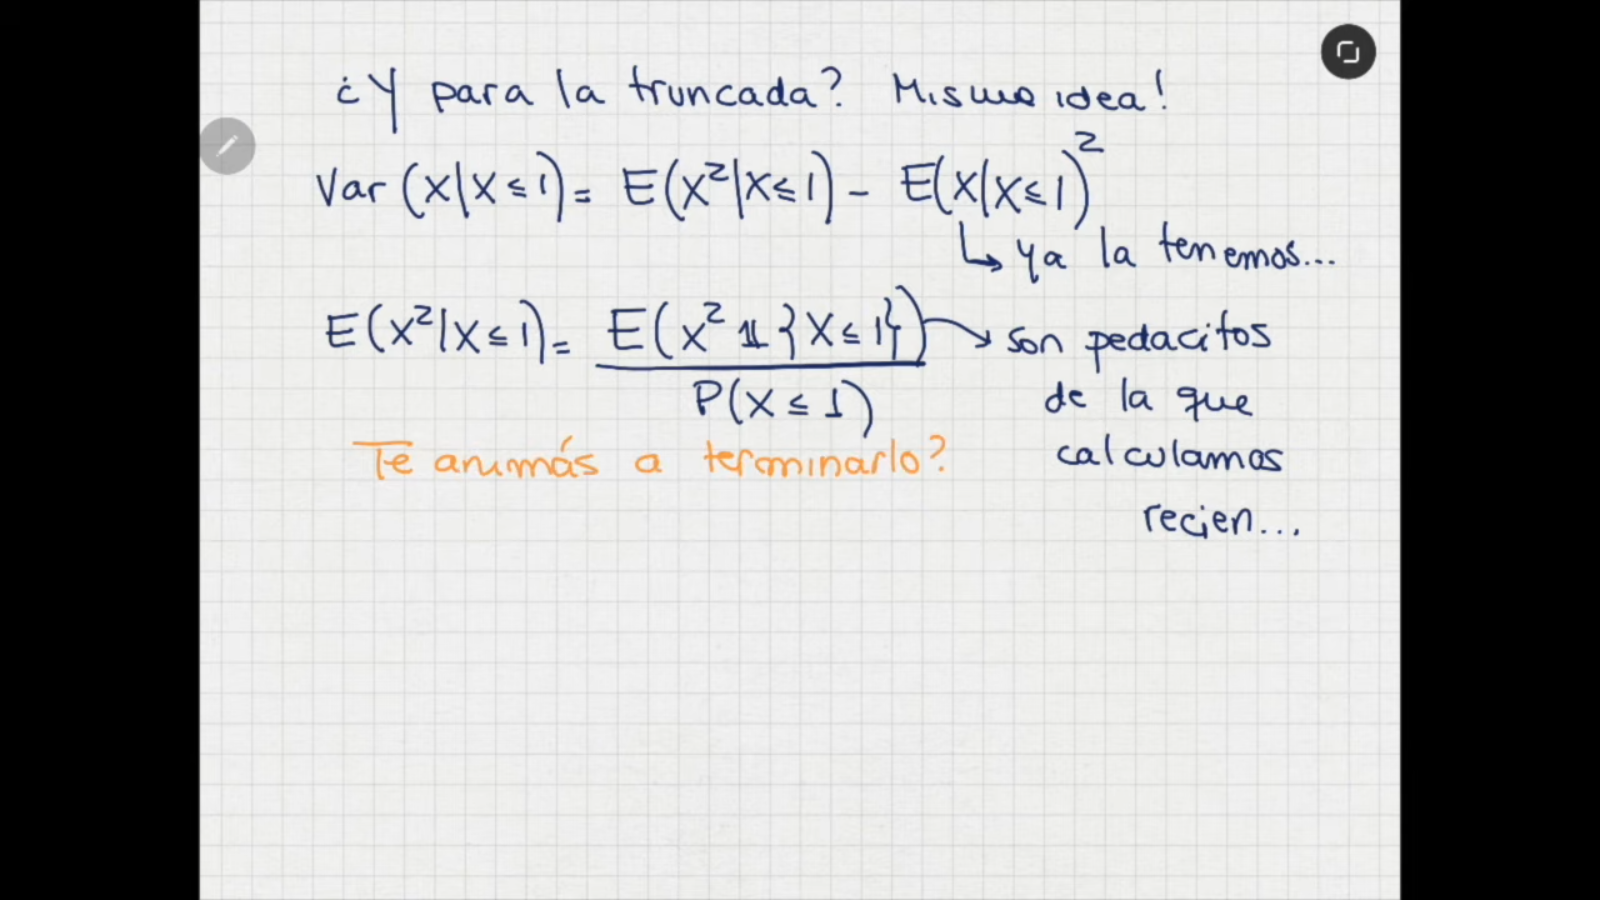 ¿Y para la truncada? Misma idea!
Var (X|X ≤ 1) = E(X²|X ≤ 1) - E(X|X ≤ 1)²
↳ Ya la tenemos...
E(X²|X ≤ 1) = E(X² 𝟙{X ≤ 1}) / P(X ≤ 1) → son pedacitos
de la que
calculamos
recien...
Te animás a terminarlo?